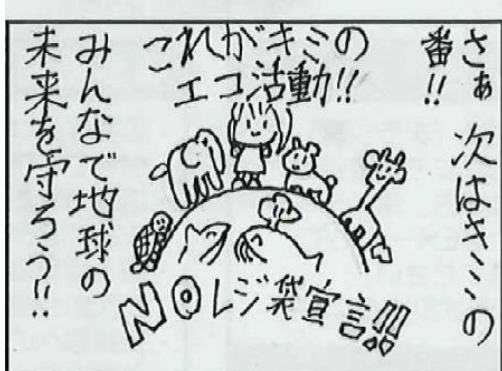 さぁ 次はキミの
番!!
これがキミの
エコ活動!!
みんなで地球の
未来を守ろう!!
NOレジ袋宣言!!